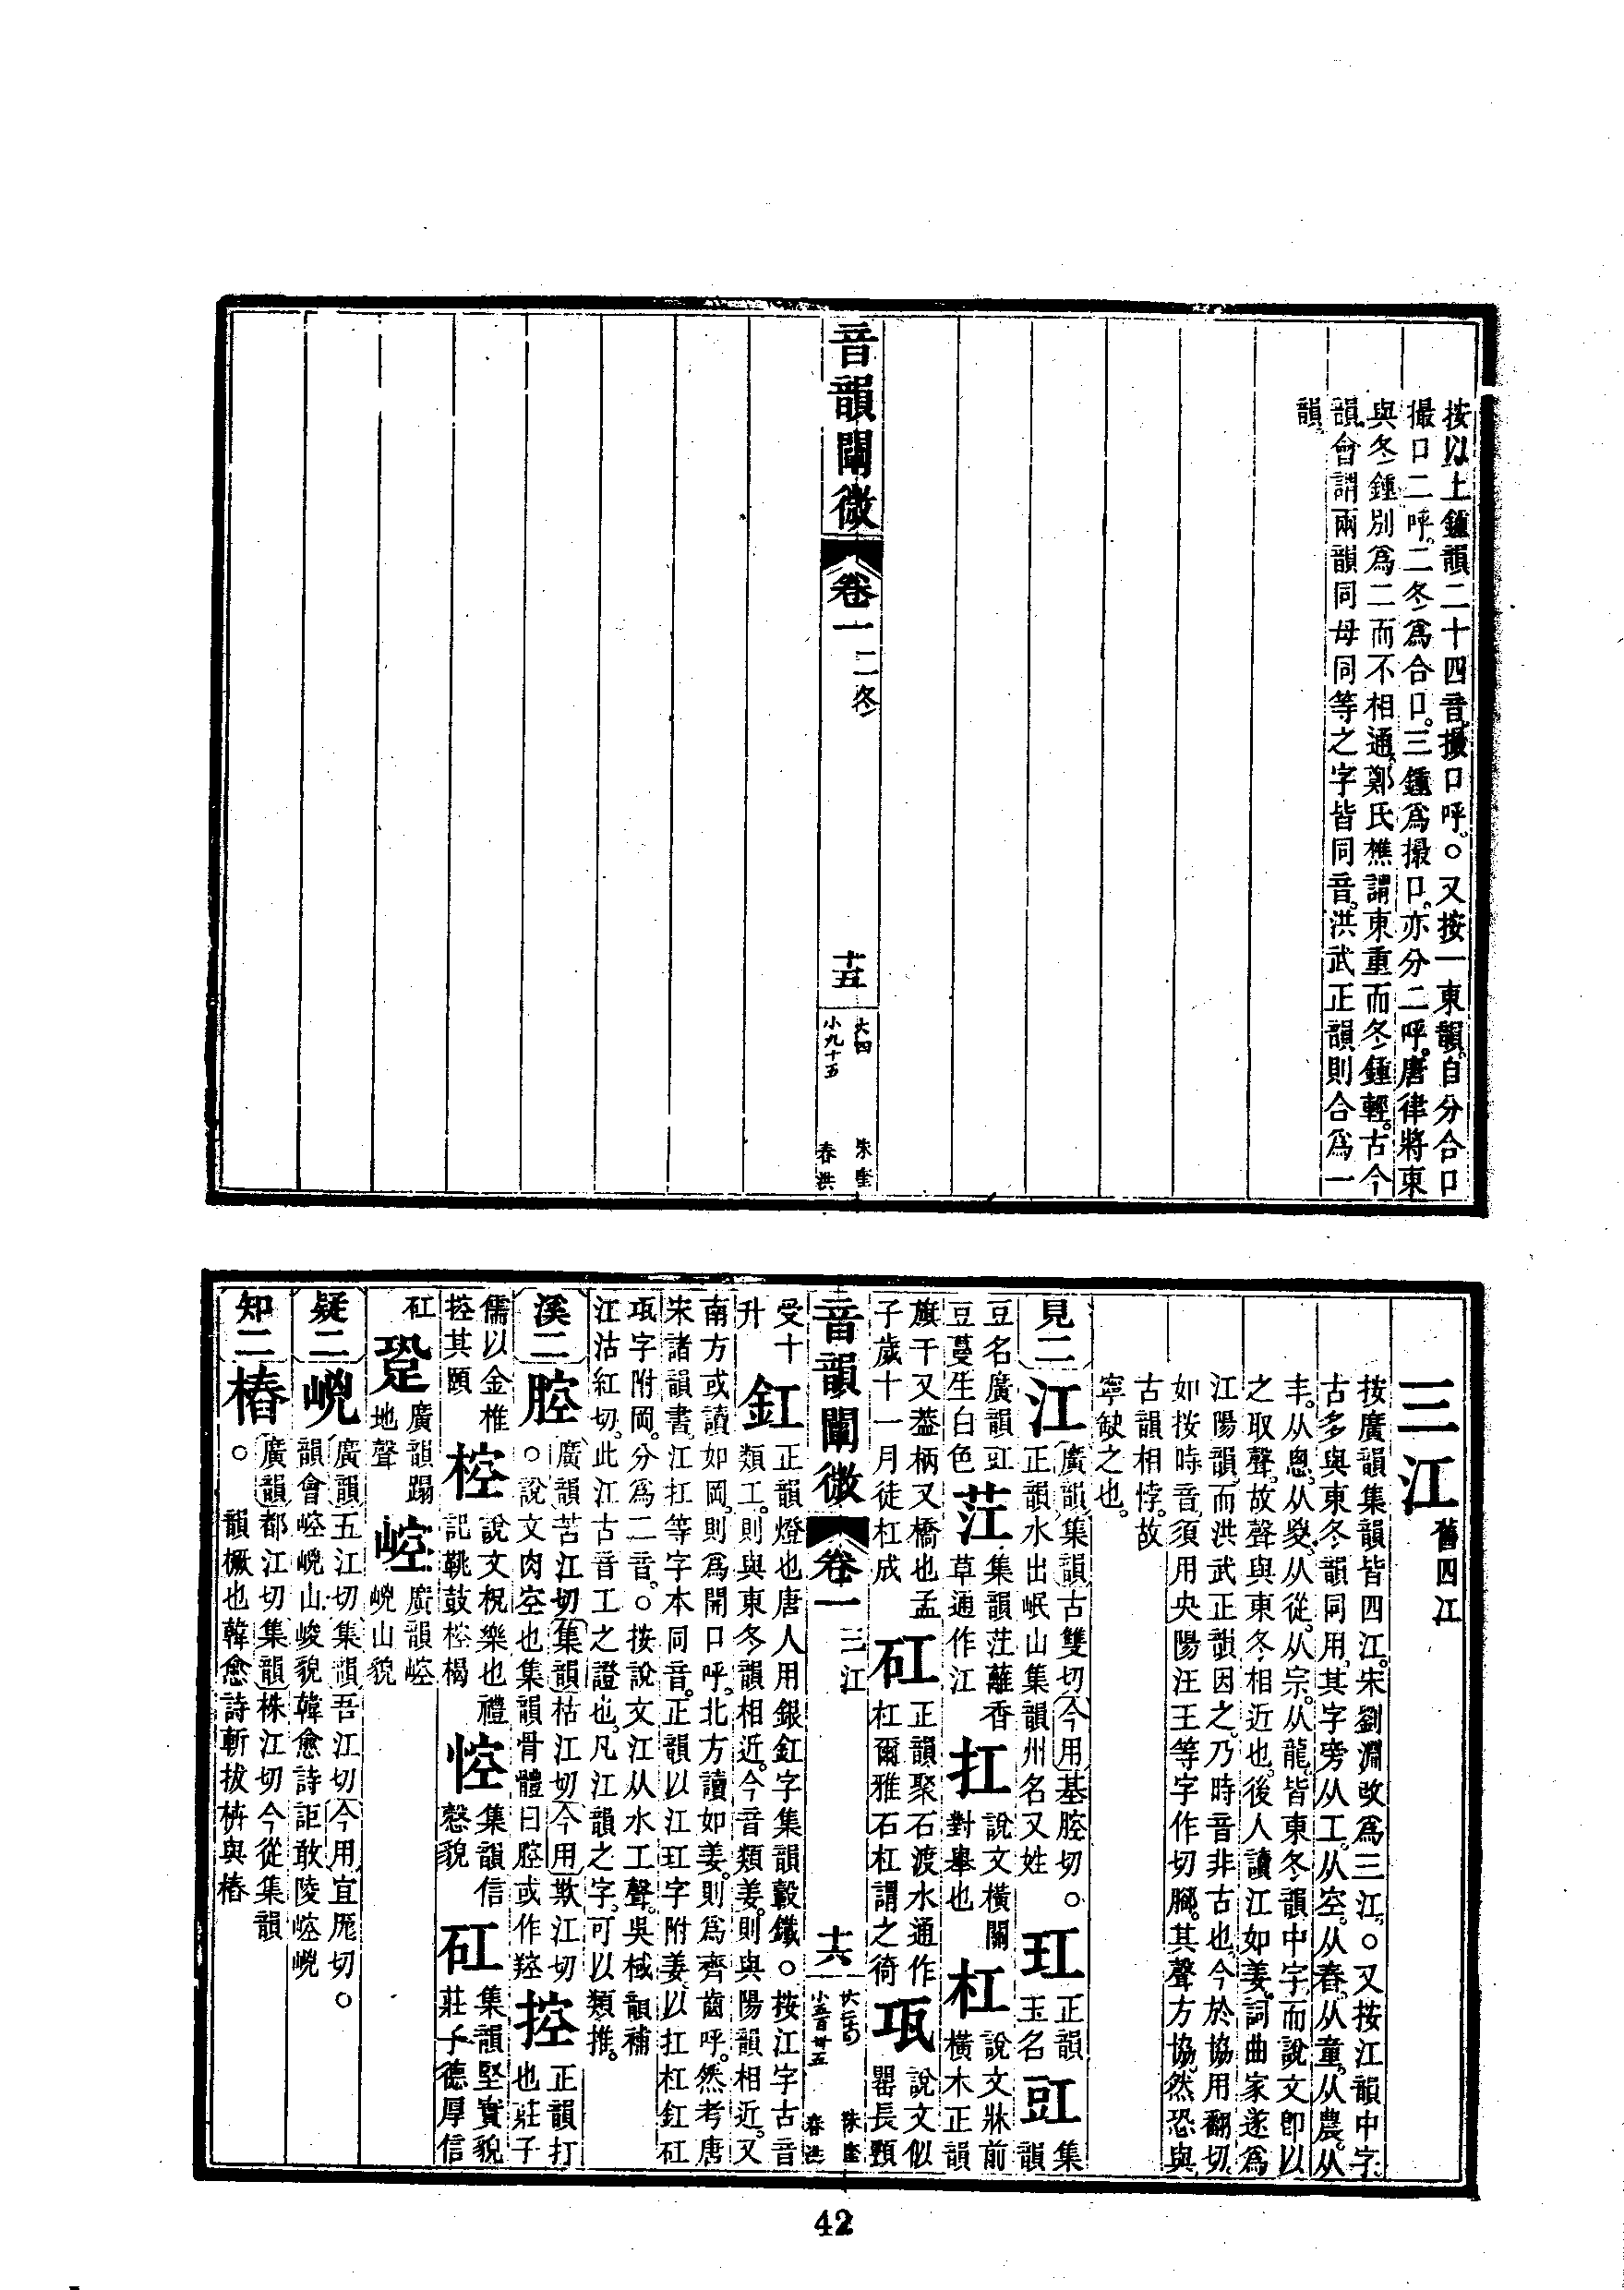 按以上鍾韻二十四音撮口呼。○又按一東韻。自分合口
撮口二呼。二冬爲合口。三鍾爲撮口。亦分二呼。唐律將東
與冬鍾別爲二而不相通。鄭氏樵謂東重而冬鍾輕。古今
韻會謂兩韻同母同等之字皆同音。洪武正韻則合爲一
韻。
音韻闡微 卷一 二冬 十五 大四 小九十五 朱奎 春洪
三江 舊四江
按廣韻集韻皆四江。宋劉淵改爲三江。○又按江韻中字
古多與東冬韻同用。其字旁从工。从空。从春。从童。从農。从
丰。从悤。从夋。从從。从宗。从龍。皆東冬韻中字。而說文卽以
之取聲。故聲與東冬相近也。後人讀江如姜。詞曲家遂爲
江陽韻。而洪武正韻因之。乃時音非古也。今於協用翻切。
如按時音。須用央陽汪王等字作切腳。其聲方協。然恐與
古韻相悖。故
寧缺之也。
見二 江 廣韻集韻古雙切今用基腔切。○正韻水出岷山集韻州名又姓 玒 正韻玉名 豇 集韻
豆名廣韻豇豆蔓生白色 茳 集韻茳蘺香草通作江 扛 說文橫關對舉也 杠 說文牀前橫木正韻
旗干又葢柄又橋也孟子歲十一月徒杠成 矼 正韻聚石渡水通作杠爾雅石杠謂之徛 㼚 說文似罌長頸
音韻闡微 卷一 三江 十六 大二十四 小五百卅五 朱奎 春洪
受十升 釭 正韻燈也唐人用銀釭字集韻轂鐵。○按江字古音類工。則與東冬韻相近。今音類姜。則與陽韻相近。又
南方或讀如岡。則爲開口呼。北方讀如姜。則爲齊齒呼。然考唐
宋諸韻書。江扛等字本同音。正韻以江玒字附姜。以扛杠釭矼
㼚字附岡。分爲二音。○按說文江从水工聲。吳棫韻補
江沽紅切。此江古音工之證也。凡江韻之字。可以類推。
溪二 腔 廣韻苦江切集韻枯江切今用欺江切。○說文肉空也集韻骨體曰腔或作羫 控 正韻打也莊子
儒以金椎控其頤 椌 說文柷樂也禮記鞉鼓椌楬 悾 集韻信愨貌 矼 集韻堅實貌莊子德厚信
矼 跫 廣韻蹋地聲 崆 廣韻崆㟅山貌
疑二 㟅 廣韻五江切集韻吾江切今用宜厖切。○韻會崆㟅山峻貌韓愈詩詎敢陵崆㟅
知二 樁 廣韻都江切集韻株江切今從集韻。○韻橛也韓愈詩斬拔枿與樁
42